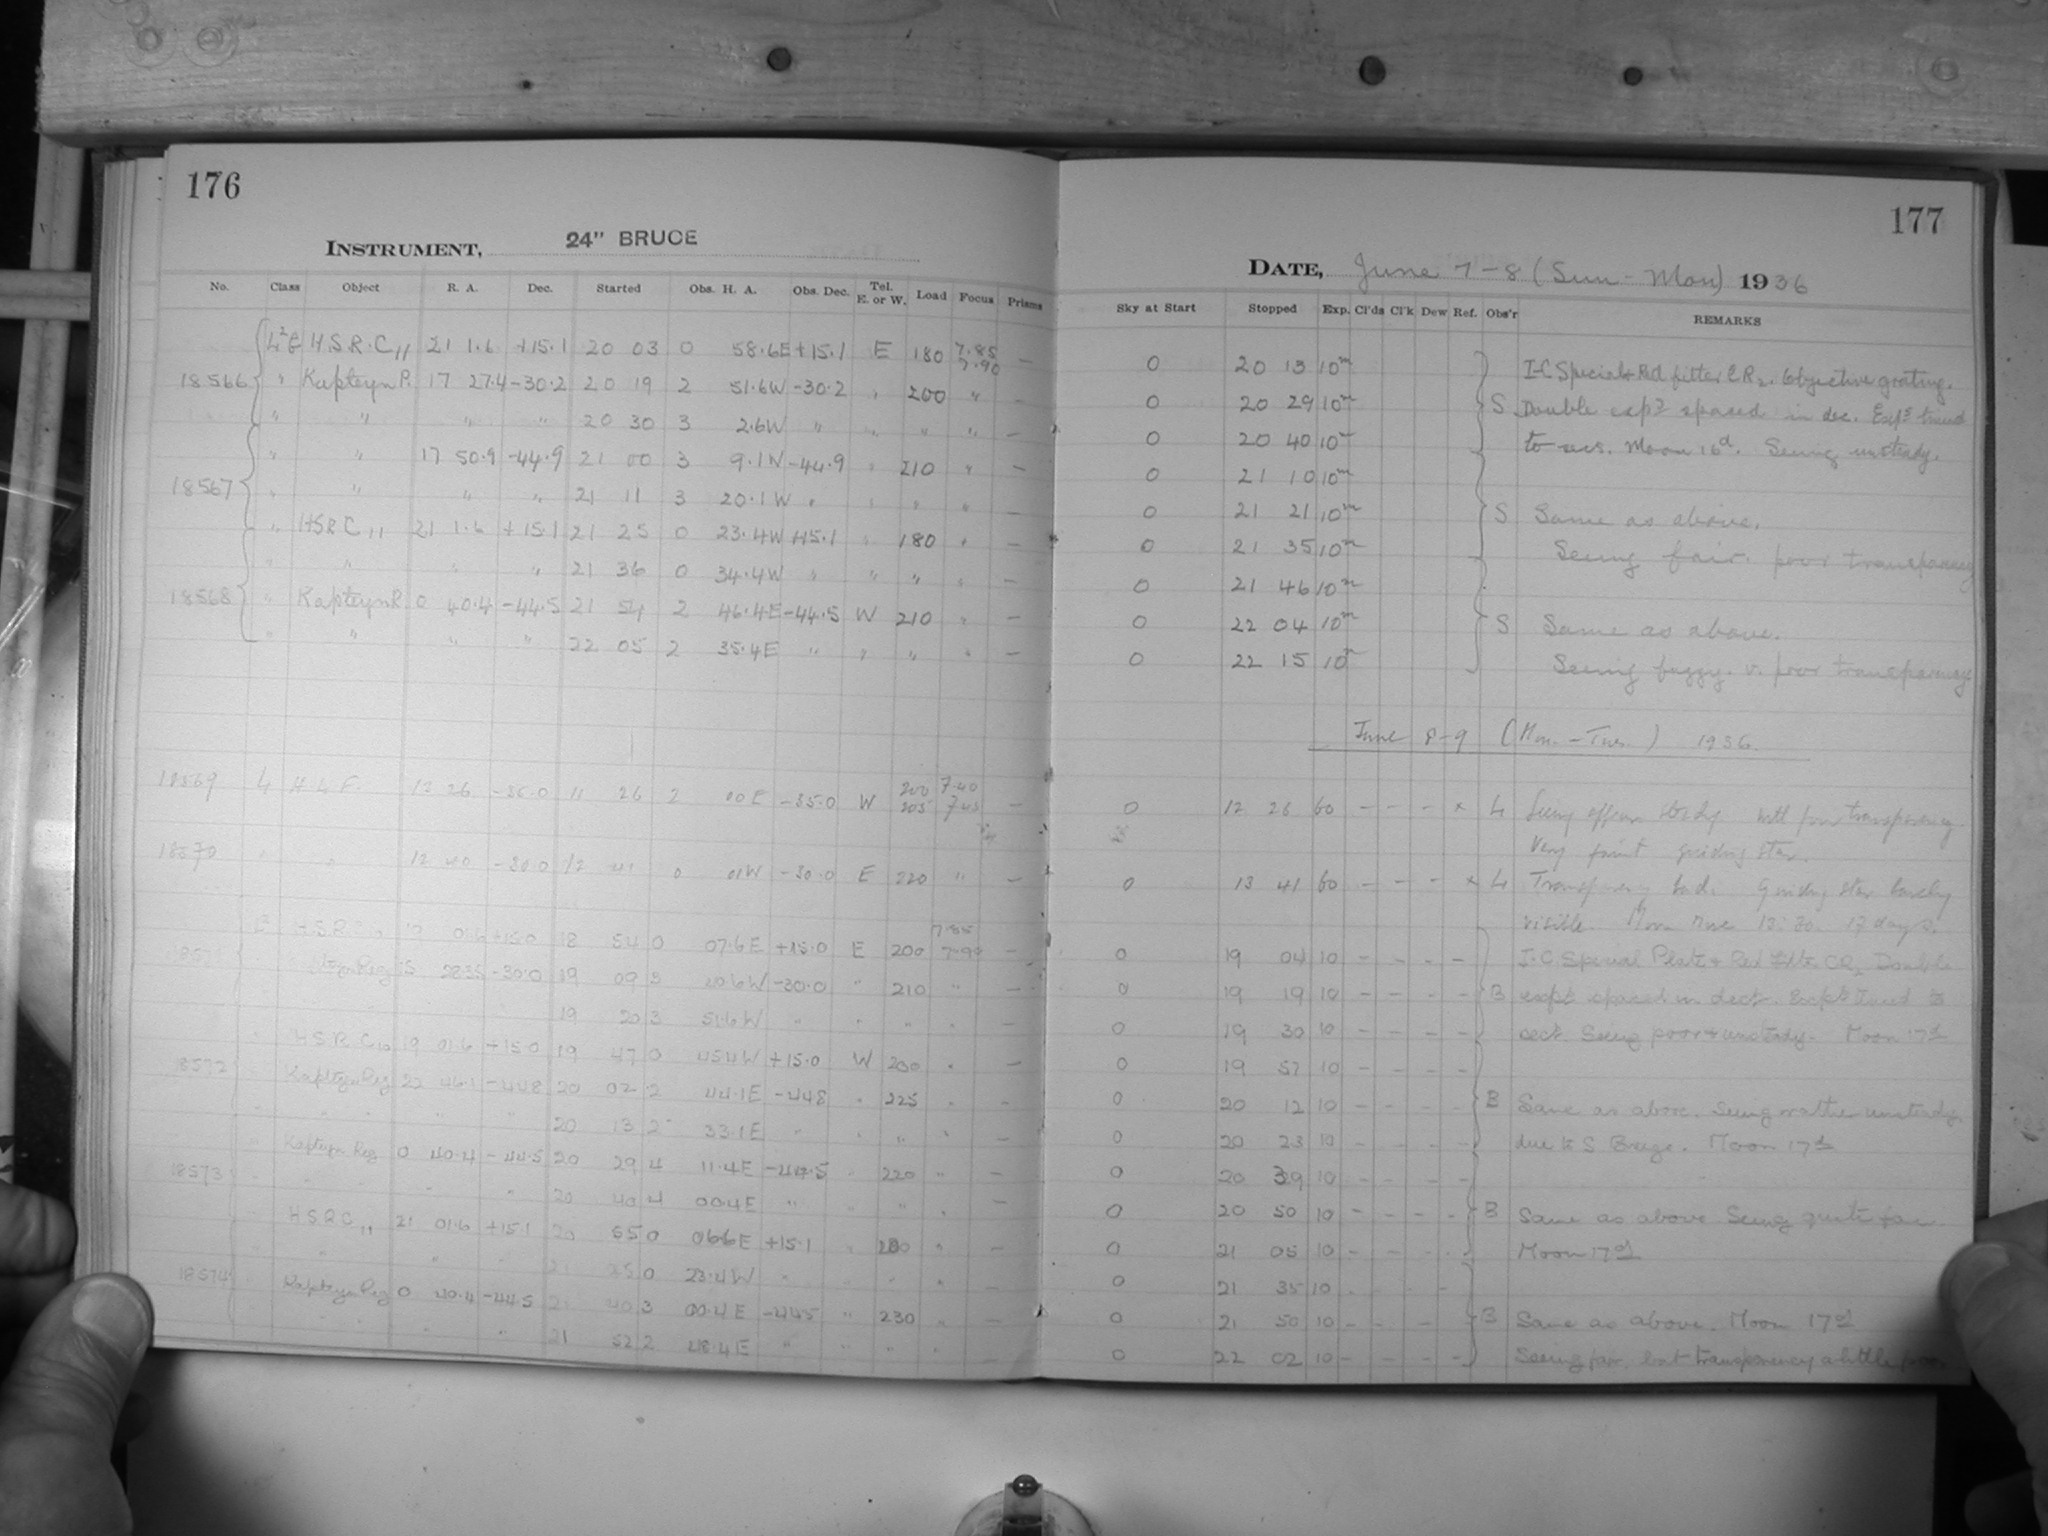 176
INSTRUMENT, 24" BRUCE
No. Class Object R. A. Dec. Started Obs. H. A. Obs. Dec. Tel. E. or W. Load Focus Prisms
H.S.R.C11 21 1.6 +15.1 20 03 0 58.6E +15.1 E 180 7.85 7.90 —
18566 " Kapteyn P. 17 27.4 -30.2 20 19 2 51.6W -30.2 " 200 " —
" " " " 20 30 3 2.6W " " " " —
" " 17 50.9 -44.9 21 00 3 9.1W -44.9 " 210 " —
18567 " " " " 21 11 3 20.1W " " " " —
" HSRC11 21 1.6 +15.1 21 25 0 23.4W +15.1 " 180 " —
" " " " 21 36 0 34.4W " " " " —
18568 " Kapteyn R. 0 40.4 -44.5 21 54 2 46.4E -44.5 W 210 " —
" " " " 22 05 2 35.4E " " " " —
18569 26 2 00E -35.0 W 200 205 7.40 —
18570 " " 12 40 -30.0 12 41 0 01W -30.0 E 220 " —
18 54 0 07.6E +15.0 E 200 7.85 —
-30.0 19 09 3 -30.0 " 210 " —
19 20 3 51.6W " " " " —
HSRC10 19 01.6 +15.0 19 47 0 45.4W +15.0 W 200 " —
18572 Kapteyn Reg 22 46.1 -44.8 20 02 2 44.1E -44.8 " 225 " —
" " " 20 13 2 33.1E " " " " —
Kapteyn Reg 0 40.4 -44.5 20 29 4 11.4E -44.5 " 220 " —
18573 " " " 20 40 4 00.4E " " " " —
HSRC11 21 01.6 +15.1 20 55 0 06.6E +15.1 " 200 " —
" " " 21 25 0 23.4W " " " " —
18574 Kapteyn Reg 0 40.4 -44.5 21 40 3 00.4E -44.5 " 230 " —
" " " 21 52 2 48.4E " " " " —
177
DATE, June 7-8 (Sun-Mon) 1936
Sky at Start Stopped Exp. Cl'ds Cl'k Dew Ref. Obs'r REMARKS
0 20 13 10m I-C Special + Red filter CR2. Objective grating.
0 20 29 10m S Double exps spaced in dec. Exps timed
0 20 40 10m to secs. Moon 16d. Seeing unsteady.
0 21 10 10m
0 21 21 10m S Same as above.
0 21 35 10m Seeing fair. poor transparency
0 21 46 10m
0 22 04 10m S Same as above.
0 22 15 10m Seeing fuzzy. v. poor transparency
June 8-9 (Mon.-Tues.) 1936.
0 12 26 60 - - - x L Seeing steady transparency
Very faint guiding star.
0 13 41 60 - - - x L Transparency bad. Guiding star barely
visible. Moon rise 13:30. 17 days.
0 19 04 10 - - - - I.C. Special Plate + Red filter CR2 Double
0 19 19 10 - - - - B expt spaced in dect. Expt timed to
0 19 30 10 - - - - sect. Seeing poor + unsteady. Moon 17d
0 19 57 10 - - - -
0 20 12 10 - - - - B Same as above. Seeing rather unsteady
0 20 23 10 - - - - due to S Breeze. Moon 17d
0 20 39 10 - - - -
0 20 50 10 - - - - B Same as above Seeing quite fair
0 21 05 10 - - - - Moon 17d
0 21 35 10 - - - -
0 21 50 10 - - - - B Same as above. Moon 17d
0 22 02 10 - - - - Seeing fair, but transparency a little poor.